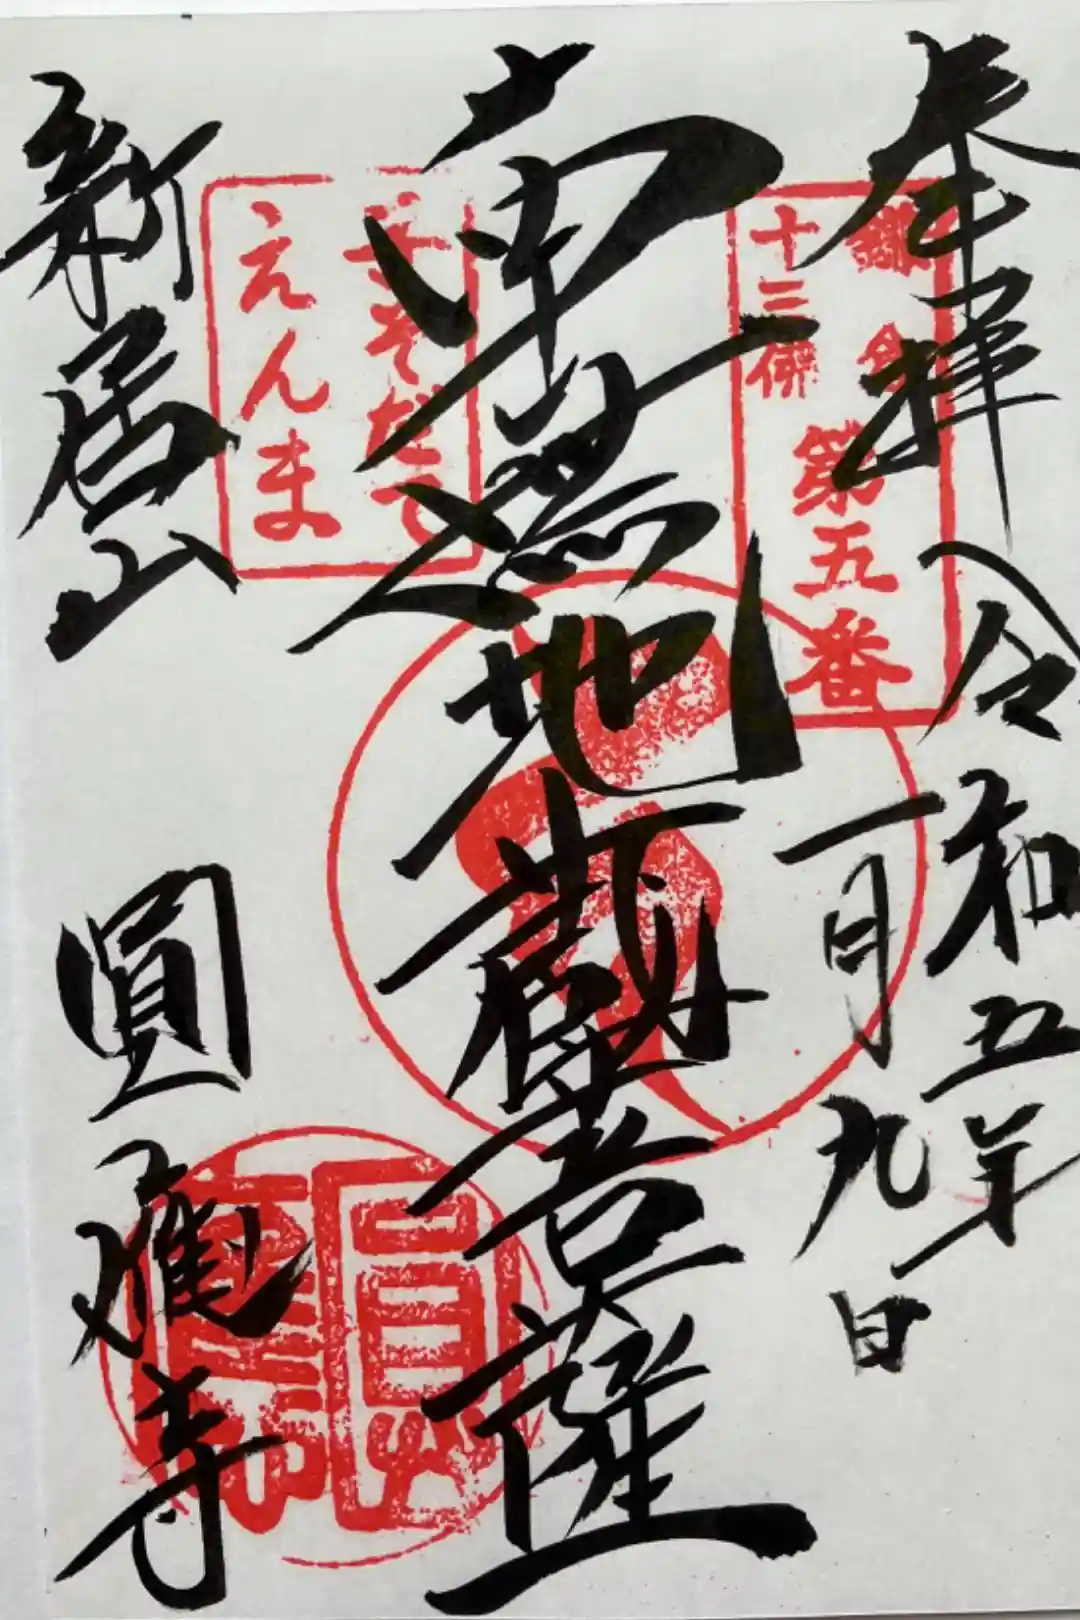 奉拝
令和五年
一月九日
鎌倉
十三佛
第五番
南無地蔵菩薩
子そだて
えんま
新居山
圓應寺